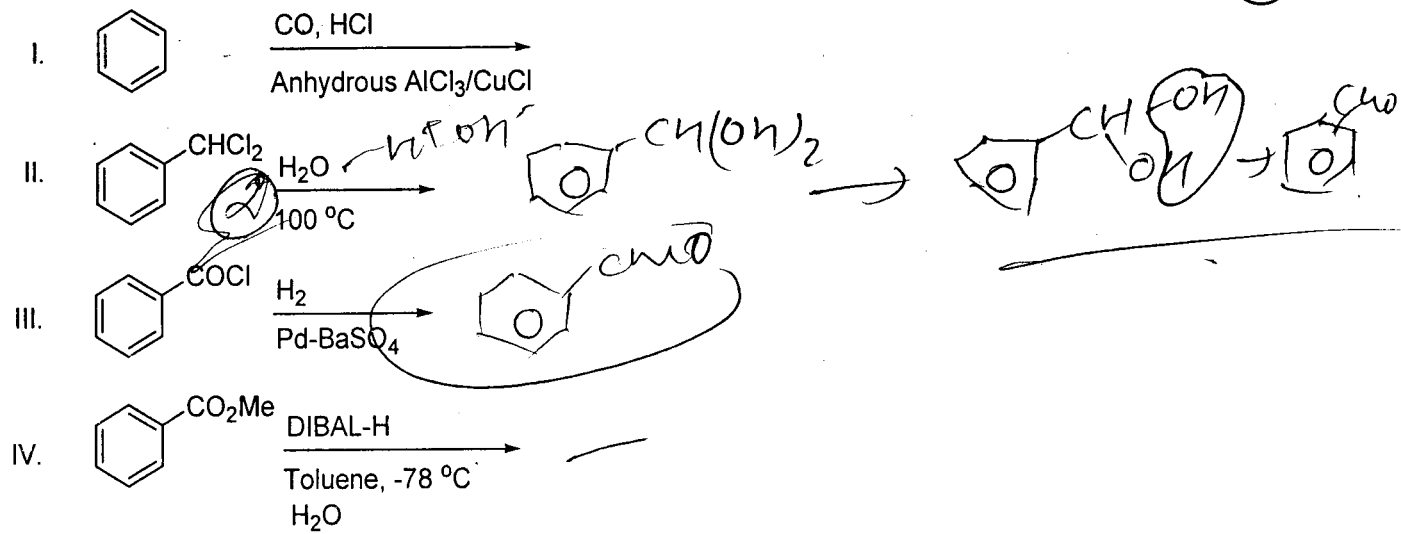 I. CO, HCl
Anhydrous AlCl₃/CuCl
II. CHCl₂ H₂O H⁺ OH⁻ CH(OH)₂ CH OH OH CHO
100 °C
III. COCl H₂ CHO
Pd-BaSO₄
IV. CO₂Me DIBAL-H
Toluene, -78 °C
H₂O